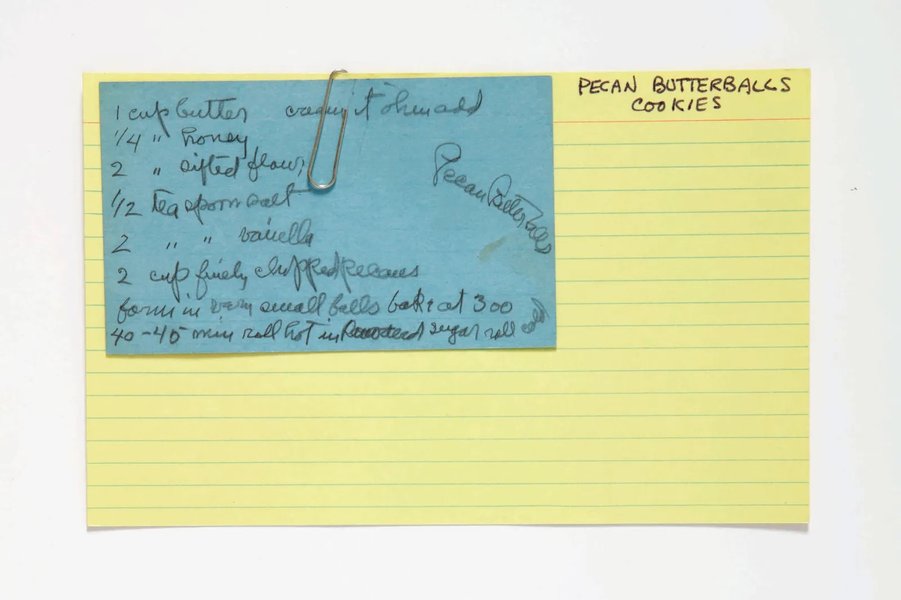 PECAN BUTTERBALLS
COOKIES
1 cup butter cream it then add
1/4 " honey
2 " sifted flour
1/2 teaspoon salt
2 " " vanilla
2 cup finely chopped pecans
form in very small balls bake at 300
40-45 min roll hot in powdered sugar roll
Pecan Butterballs